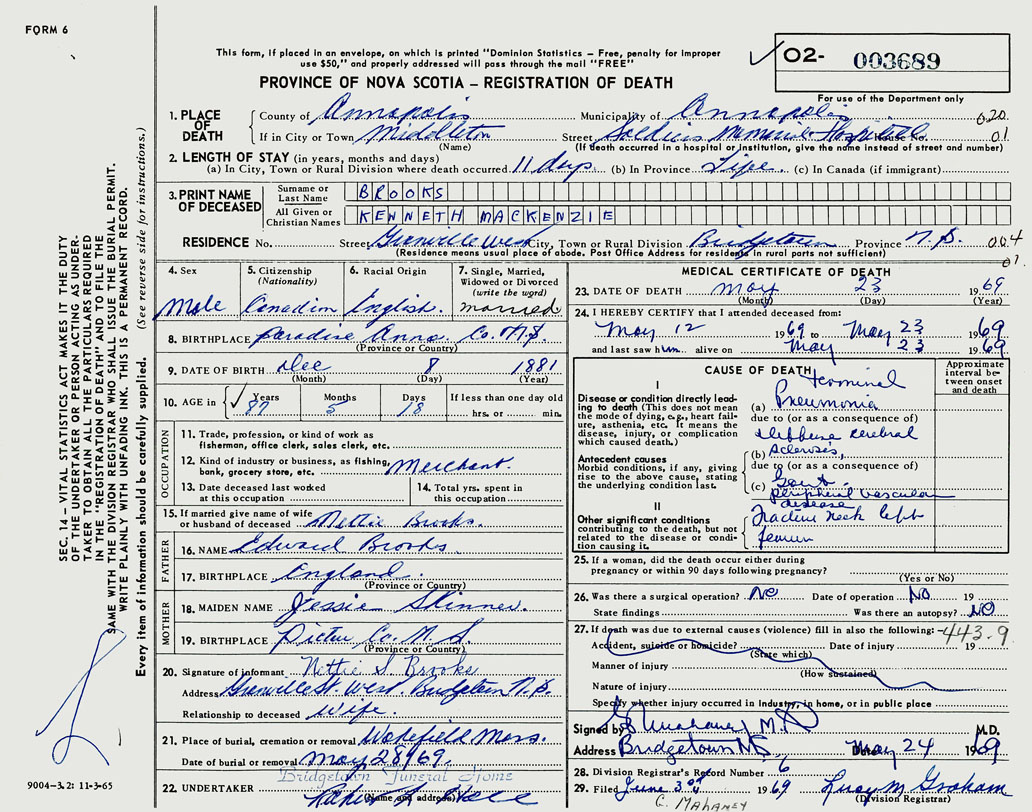 FORM 6
This form, if placed in an envelope, on which is printed "Dominion Statistics – Free, penalty for improper
use $50," and properly addressed will pass through the mail "FREE"
PROVINCE OF NOVA SCOTIA – REGISTRATION OF DEATH
O2- 003689
For use of the Department only
1. PLACE OF DEATH
County of Annapolis Municipality of Annapolis 020
If in City or Town Middleton Street Soldiers Memorial Hospital House No. 01
(Name) (If death occurred in a hospital or Institution, give the name instead of street and number)
2. LENGTH OF STAY (in years, months and days)
(a) In City, Town or Rural Division where death occurred 11 days (b) In Province Life (c) In Canada (if immigrant)
3. PRINT NAME OF DECEASED
Surname or Last Name BROOKS
All Given or Christian Names KENNETH MACKENZIE
RESIDENCE No. Street Granville West City, Town or Rural Division Bridgetown Province N.S. 004
(Residence means usual place of abode. Post Office Address for residents in rural parts not sufficient) 01.
4. Sex Male
5. Citizenship (Nationality) Canadian
6. Racial Origin English.
7. Single, Married, Widowed or Divorced (write the word) married
8. BIRTHPLACE Paradise Anna. Co. N.S.
(Province or Country)
9. DATE OF BIRTH Dec 8 1881
(Month) (Day) (Year)
10. AGE in Years Months Days If less than one day old
87 5 18 hrs. or min.
OCCUPATION
11. Trade, profession, or kind of work as
fisherman, office clerk, sales clerk, etc.
12. Kind of industry or business, as fishing, Merchant.
bank, grocery store, etc.
13. Date deceased last worked
at this occupation
14. Total yrs. spent in
this occupation
15. If married give name of wife
or husband of deceased Nettie Brooks.
FATHER
16. NAME Edward Brooks
17. BIRTHPLACE England.
(Province or Country)
MOTHER
18. MAIDEN NAME Jessie Skinner.
19. BIRTHPLACE Pictou Co. N.S.
(Province or Country)
20. Signature of informant Nettie S. Brooks
Address Granville St. West. Bridgetown N.S.
Relationship to deceased Wife.
21. Place of burial, cremation or removal Wakefield Mass.
Date of burial or removal May 28/69.
Bridgetown Funeral Home
22. UNDERTAKER
(Name and address)
MEDICAL CERTIFICATE OF DEATH
23. DATE OF DEATH May 23 1969
(Month) (Day) (Year)
24. I HEREBY CERTIFY that I attended deceased from:
May 12 1969 to May 23 1969
and last saw him alive on May 23 1969
CAUSE OF DEATH
Approximate interval between onset and death
I
Disease or condition directly leading to death (This does not mean the mode of dying, e.g., heart failure, asthenia, etc. It means the disease, injury, or complication which caused death.)
(a) Terminal Pneumonia
due to (or as a consequence of)
Antecedent causes
Morbid conditions, if any, giving rise to the above cause, stating the underlying condition last.
(b) diffuse cerebral sclerosis,
due to (or as a consequence of)
(c) Gout.
peripheral vascular disease
II
Other significant conditions contributing to the death, but not related to the disease or condition causing it.
Fracture neck left
femur
25. If a woman, did the death occur either during
pregnancy or within 90 days following pregnancy?
(Yes or No)
26. Was there a surgical operation? NO Date of operation NO 19
State findings Was there an autopsy? NO
27. If death was due to external causes (violence) fill in also the following: 443.9
Accident, suicide or homicide? Date of injury 19
(State which)
Manner of injury
(How sustained)
Nature of injury
Specify whether injury occurred in Industry, in home, or in public place
Signed by Mahaney M.D. M.D.
Address Bridgetown NS Date May 24 1969
28. Division Registrar's Record Number 6
29. Filed June 3rd 1969 Lucy M Graham
(Division Registrar)
C. MAHANEY
SEC. 14 – VITAL STATISTICS ACT MAKES IT THE DUTY
OF THE UNDERTAKER OR PERSON ACTING AS UNDER-
TAKER TO OBTAIN ALL THE PARTICULARS REQUIRED
IN THE "REGISTRATION OF DEATH" AND TO FILE THE
SAME WITH THE DIVISION REGISTRAR WHO SHALL ISSUE THE BURIAL PERMIT.
WRITE PLAINLY WITH UNFADING INK. THIS IS A PERMANENT RECORD.
Every item of information should be carefully supplied. (See reverse side for instructions.)
9004-3.2: 11-3-65